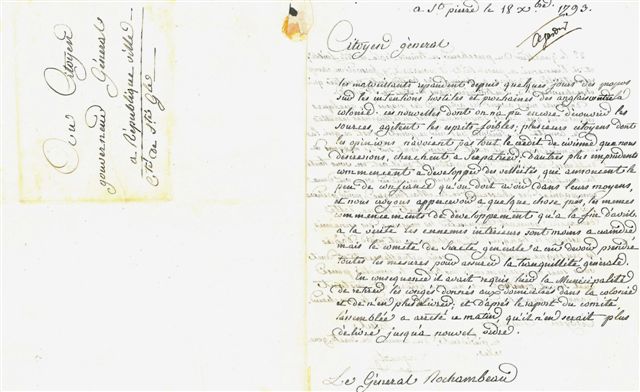 Au Citoyen
gouverneur Général
a République ville
a St pierre le 18 Xbre 1793.
Citoyen général
les malveillants répandent depuis quelques jours du moyens
sur les intentions hostiles et prochaines des anglais contre la
colonie. ces nouvelles dont on n'a pu encore découvrir les
sources, agitent les esprits foibles; plusieurs citoyens dont
les opinions n'avoient pas tout le crédit de civisme que nous
desirerions, cherchent à s'expatrier. D'autres plus imprudents
commencent a developper des velléités, qui annoncent le
peu de confiance qu'on doit avoir dans leurs moyens,
et nous croyons appercevoir a quelque chose près, les memes
commencements de développements qu'a la fin d'avril
à la vérité les ennemis intérieurs sont moins a craindre
mais le comité de sureté générale a cru devoir prendre
toutes les mesures pour assurer la tranquillité générale.
En consequence il avait requis hier la Municipalité
de retirer les congés donnés aux domiciliés dans la colonie
et de n'en plus délivrer, et d'après le raport du comité
l'assemblée a arrêté ce matin, qu'il n'en serait plus
délivré jusqu'à nouvel ordre.
Le Général Rochambeau